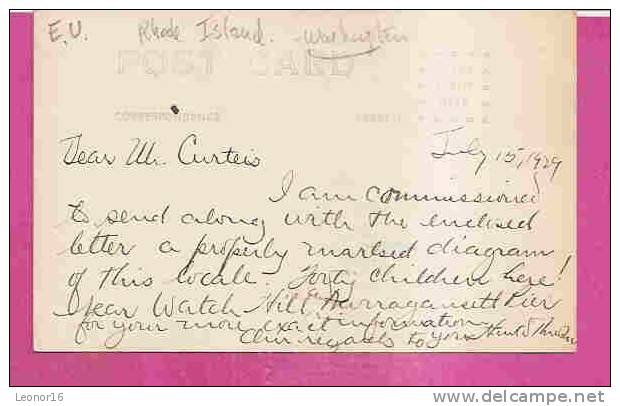 E.U. Rhode Island. Washington
POST CARD
CORRESPONDENCE
July 15, 1929
Dear Mr. Curteis
I am commissioned
to send along with the enclosed
letter a properly marked diagram
of this locale. Forty children here!
Near Watch Hill & Narragansett Pier
for your more exact information
Our regards to you
Leonor16
www.delcampe.net